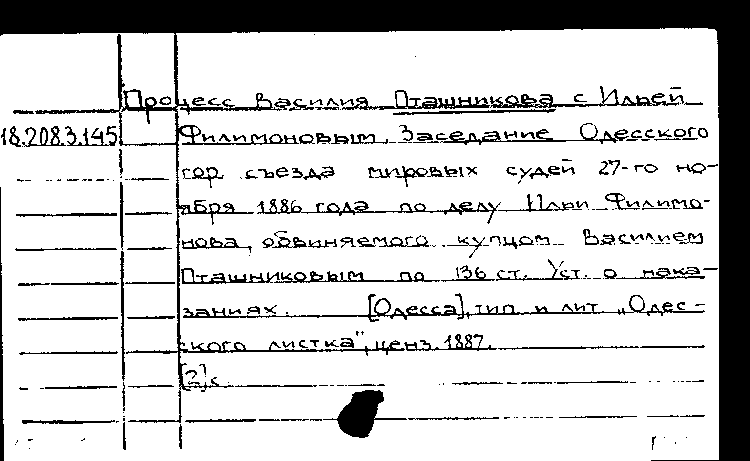 Процесс Василия Пташникова с Ильей
18.208.3.145 Филимоновым. Заседание Одесского
гор. съезда мировых судей 27-го но-
ября 1886 года по делу Ильи Филимо-
нова, обвиняемого купцом Василием
Пташниковым по 136 ст. Уст. о нака-
заниях. [Одесса], тип. и лит. „Одес-
ского листка", ценз. 1887.
[2] с.